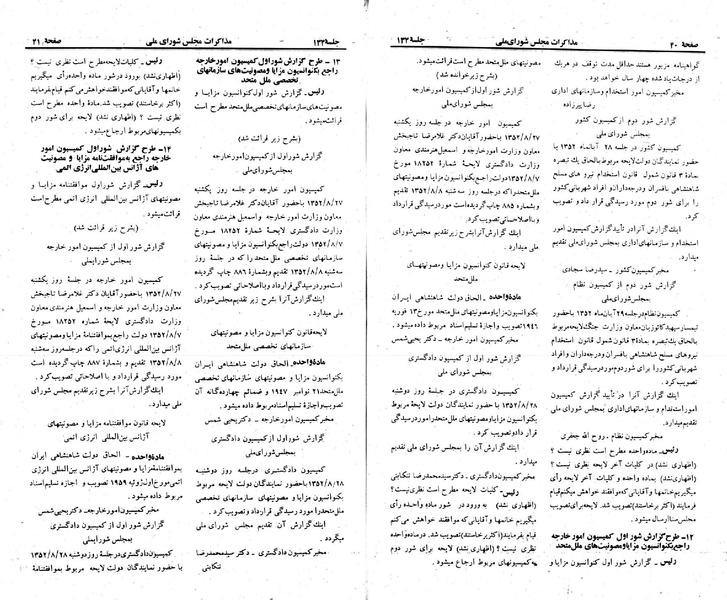 صفحه ۲۰ مذاکرات مجلس شورای ملی جلسه ۱۳۲
گواهینامه مزبور هستند حداقل مدت توقف در هریک
از درجات یاد شده چهار سال خواهد بود.
مخبر کمیسیون امور استخدام و سازمانهای اداری
رضا پیرزاده
گزارش شور دوم از کمیسیون کشور
کمیسیون کشور در جلسه ۲۸ آبانماه ۱۳۵۲ با
حضور نمایندگان دولت لایحه مربوط بالحاق یک تبصره
بماده ۳ قانون شمول قانون استخدام نیرو های مسلح
شاهنشاهی بافسران و درجه‌داران و افراد شهربانی کشور
را برای شور دوم مورد رسیدگی قرار داد و تصویب
کرد.
اینک گزارش آنرا در تأیید گزارش کمیسیون امور
استخدام و سازمانهای اداری بمجلس شورای ملی تقدیم
میدارد.
مخبر کمیسیون کشور - سید رضا سجادی
گزارش شور دوم از کمیسیون نظام
بمجلس شورای ملی
کمیسیون نظام در جلسه ۲۹ آبان ماه ۱۳۵۲ با حضور
تیمسار سپهبد کاتوزیان معاون وزارت جنگ لایحه مربوط
بالحاق یک تبصره بماده ۳ قانون شمول قانون استخدام
نیروهای مسلح شاهنشاهی بافسران و درجه‌داران و افراد
شهربانی کشور را برای شور دوم مورد رسیدگی قرار داد و
تصویب کرد.
اینک گزارش آنرا در تأیید گزارش کمیسیون
امور استخدام و سازمانهای اداری بمجلس شورای ملی تقدیم
میدارد.
مخبر کمیسیون نظام - روح الله جعفری
رئیس - ماده واحده مطرح است نظری نیست ؟
(اظهاری نشد) در کلیات آخر لایحه نظری نیست ؟
(اظهاری نشد) بماده واحده و کلیات آخر لایحه رأی
میگیریم خانمها و آقایانی که موافقند خواهش میکنم قیام
فرمایند (اکثر برخاستند) تصویب شد. لایحه برای
مجلس سنا ارسال میشود.
۱۲ - طرح گزارش شور اول کمیسیون امور خارجه
راجع بکنوانسیون مزایا و مصونیت‌های ملل متحد
رئیس - گزارش شور اول کنوانسیون مزایا و
مصونیتهای ملل متحد مطرح است قرائت میشود.
(بشرح زیر خوانده شد)
گزارش شور اول از کمیسیون امور خارجه
بمجلس شورای ملی
کمیسیون امور خارجه در جلسه روز یکشنبه
۱۳۵۲/۸/۲۷ با حضور آقایان دکتر غلامرضا تاجبخش
معاون وزارت امور خارجه و اسمعیل هنرمندی معاون
وزارت دادگستری لایحه شماره ۱۸۲۵۲ مورخ
۱۳۵۲/۸/۷ دولت راجع بکنوانسیون مزایا و مصونیتهای
ملل متحد را که در جلسه روز سه شنبه ۱۳۵۲/۸/۸ تقدیم
و بشماره ۸۸۵ چاپ گردیده است مورد رسیدگی قرار داد
و با اصلاحاتی تصویب کرد.
اینک گزارش آنرا بشرح زیر تقدیم مجلس شورای
ملی میدارد.
لایحه قانون کنوانسیون مزایا و مصونیتهای
ملل متحد
ماده واحده - الحاق دولت شاهنشاهی ایران
بکنوانسیون مزایا و مصونیتهای ملل متحد مورخ ۱۳ فوریه
۱۹۴۶ تصویب و اجازه تسلیم اسناد مربوط داده میشود.
مخبر کمیسیون امور خارجه - دکتر یحیی شمس
گزارش شور اول از کمیسیون دادگستری
بمجلس شورای ملی
کمیسیون دادگستری در جلسهٔ روز دوشنبه
۱۳۵۲/۸/۲۸ با حضور نمایندگان دولت لایحه مربوط
بکنوانسیون مزایا و مصونیتهای ملل متحد را مورد رسیدگی
قرار داد و تصویب کرد.
اینک گزارش آن را بمجلس شورای ملی تقدیم
میدارد.
مخبر کمیسیون دادگستری - دکتر سید محمدرضا تنکابنی
رئیس - کلیات لایحه مطرح است نظری نیست ؟
(اظهاری نشد) به ورود در شور ماده واحده رأی
میگیریم خانمها و آقایانی که موافقند خواهش می کنم
قیام بفرمایند (اکثر برخاستند) تصویب شد. در ماده واحده
نظری نیست ؟ (اظهاری نشد) لایحه برای شور دوم
بکمیسیونهای مربوط ارجاع میشود.
جلسه ۱۳۲ مذاکرات مجلس شورای ملی صفحه ۲۱
۱۳ - طرح گزارش شور اول کمیسیون امور خارجه
راجع بکنوانسیون مزایا و مصونیت‌های سازمانهای
تخصصی ملل متحد
رئیس - گزارش شور اول کنوانسیون مزایا و
مصونیت‌های سازمانهای تخصصی ملل متحد مطرح است
قرائت میشود.
(بشرح زیر قرائت شد)
گزارش شور اول از کمیسیون امور خارجه
بمجلس شورای ملی
کمیسیون امور خارجه در جلسه روز یکشنبه
۱۳۵۲/۸/۲۷ با حضور آقایان دکتر غلامرضا تاجبخش
معاون وزارت امور خارجه و اسمعیل هنرمندی معاون
وزارت دادگستری لایحهٔ شمارهٔ ۱۸۲۵۲ مورخ
۱۳۵۲/۸/۷ دولت راجع بکنوانسیون مزایا و مصونیتهای
سازمانهای تخصصی ملل متحد را که در جلسه روز
سه شنبه ۱۳۵۲/۸/۸ تقدیم و بشماره ۸۸۶ چاپ گردیده
است مورد رسیدگی قرار داد و با اصلاحاتی تصویب کرد.
اینک گزارش آنرا بشرح زیر تقدیم مجلس شورای
ملی میدارد.
لایحه قانون کنوانسیون مزایا و مصونیتهای
سازمانهای تخصصی ملل متحد
ماده واحده - الحاق دولت شاهنشاهی ایران
بکنوانسیون مزایا و مصونیتهای سازمانهای تخصصی
ملل متحد ۲۱ نوامبر ۱۹۴۷ و ضمائم چهارده گانه آن
تصویب و اجازهٔ تسلیم اسناد مربوط داده میشود.
مخبر کمیسیون امور خارجه - دکتر یحیی شمس
گزارش شور اول از کمیسیون دادگستری
بمجلس شورای ملی
کمیسیون دادگستری در جلسه روز دوشنبه
۱۳۵۲/۸/۲۸ با حضور نمایندگان دولت لایحه مربوط
بکنوانسیون مزایا و مصونیتهای سازمانهای تخصصی
ملل متحد را مورد رسیدگی قرار داد و تصویب کرد.
اینک گزارش آن تقدیم مجلس شورای ملی
میگردد.
مخبر کمیسیون دادگستری - دکتر سید محمدرضا
تنکابنی
رئیس - کلیات لایحه مطرح است نظری نیست ؟
(اظهاری نشد) بورود در شور ماده واحده رأی میگیریم
خانمها و آقایانی که موافقند خواهش می کنم قیام فرمایند
(اکثر برخاستند) تصویب شد. ماده واحده مطرح است
نظری نیست ؟ (اظهاری نشد) لایحه برای شور دوم
بکمیسیونهای مربوط ارجاع میشود.
۱۴ - طرح گزارش شور اول کمیسیون امور
خارجه راجع به موافقتنامه مزایا و مصونیت
های آژانس بین المللی انرژی اتمی
رئیس - گزارش شور اول موافقتنامه مزایا و
مصونیتهای آژانس بین المللی انرژی اتمی مطرح است
قرائت میشود.
(بشرح زیر قرائت شد)
گزارش شور اول از کمیسیون امور خارجه
بمجلس شورایملی
کمیسیون امور خارجه در جلسهٔ روز یکشنبه
۱۳۵۲/۸/۲۷ با حضور آقایان دکتر غلامرضا تاجبخش
معاون وزارت امور خارجه و اسمعیل هنرمندی معاون
وزارت دادگستری لایحهٔ شماره ۱۸۲۵۲ مورخ
۱۳۵۲/۸/۷ دولت راجع بموافقتنامهٔ مزایا و مصونیتهای
آژانس بین المللی انرژی اتمی را که در جلسه روز سه شنبه
۱۳۵۲/۸/۸ تقدیم و بشماره ۸۸۷ چاپ گردیده است
مورد رسیدگی قرار داد و با اصلاحاتی تصویب کرد.
اینک گزارش آنرا بشرح زیر تقدیم مجلس شورای
ملی میدارد.
لایحه قانون موافقتنامه مزایا و مصونیتهای
آژانس بین المللی انرژی اتمی
ماده واحده - الحاق دولت شاهنشاهی ایران
بموافقتنامه مزایا و مصونیتهای آژانس بین المللی انرژی
اتمی مورخ اول ژوئیه ۱۹۵۹ تصویب و اجازه تسلیم اسناد
مربوط داده میشود.
مخبر کمیسیون امور خارجه - دکتر یحیی شمس
گزارش شور اول از کمیسیون دادگستری
بمجلس شورایملی
کمیسیون دادگستری در جلسهٔ روز دوشنبه ۱۳۵۲/۸/۲۸
با حضور نمایندگان دولت لایحه مربوط بموافقتنامهٔ